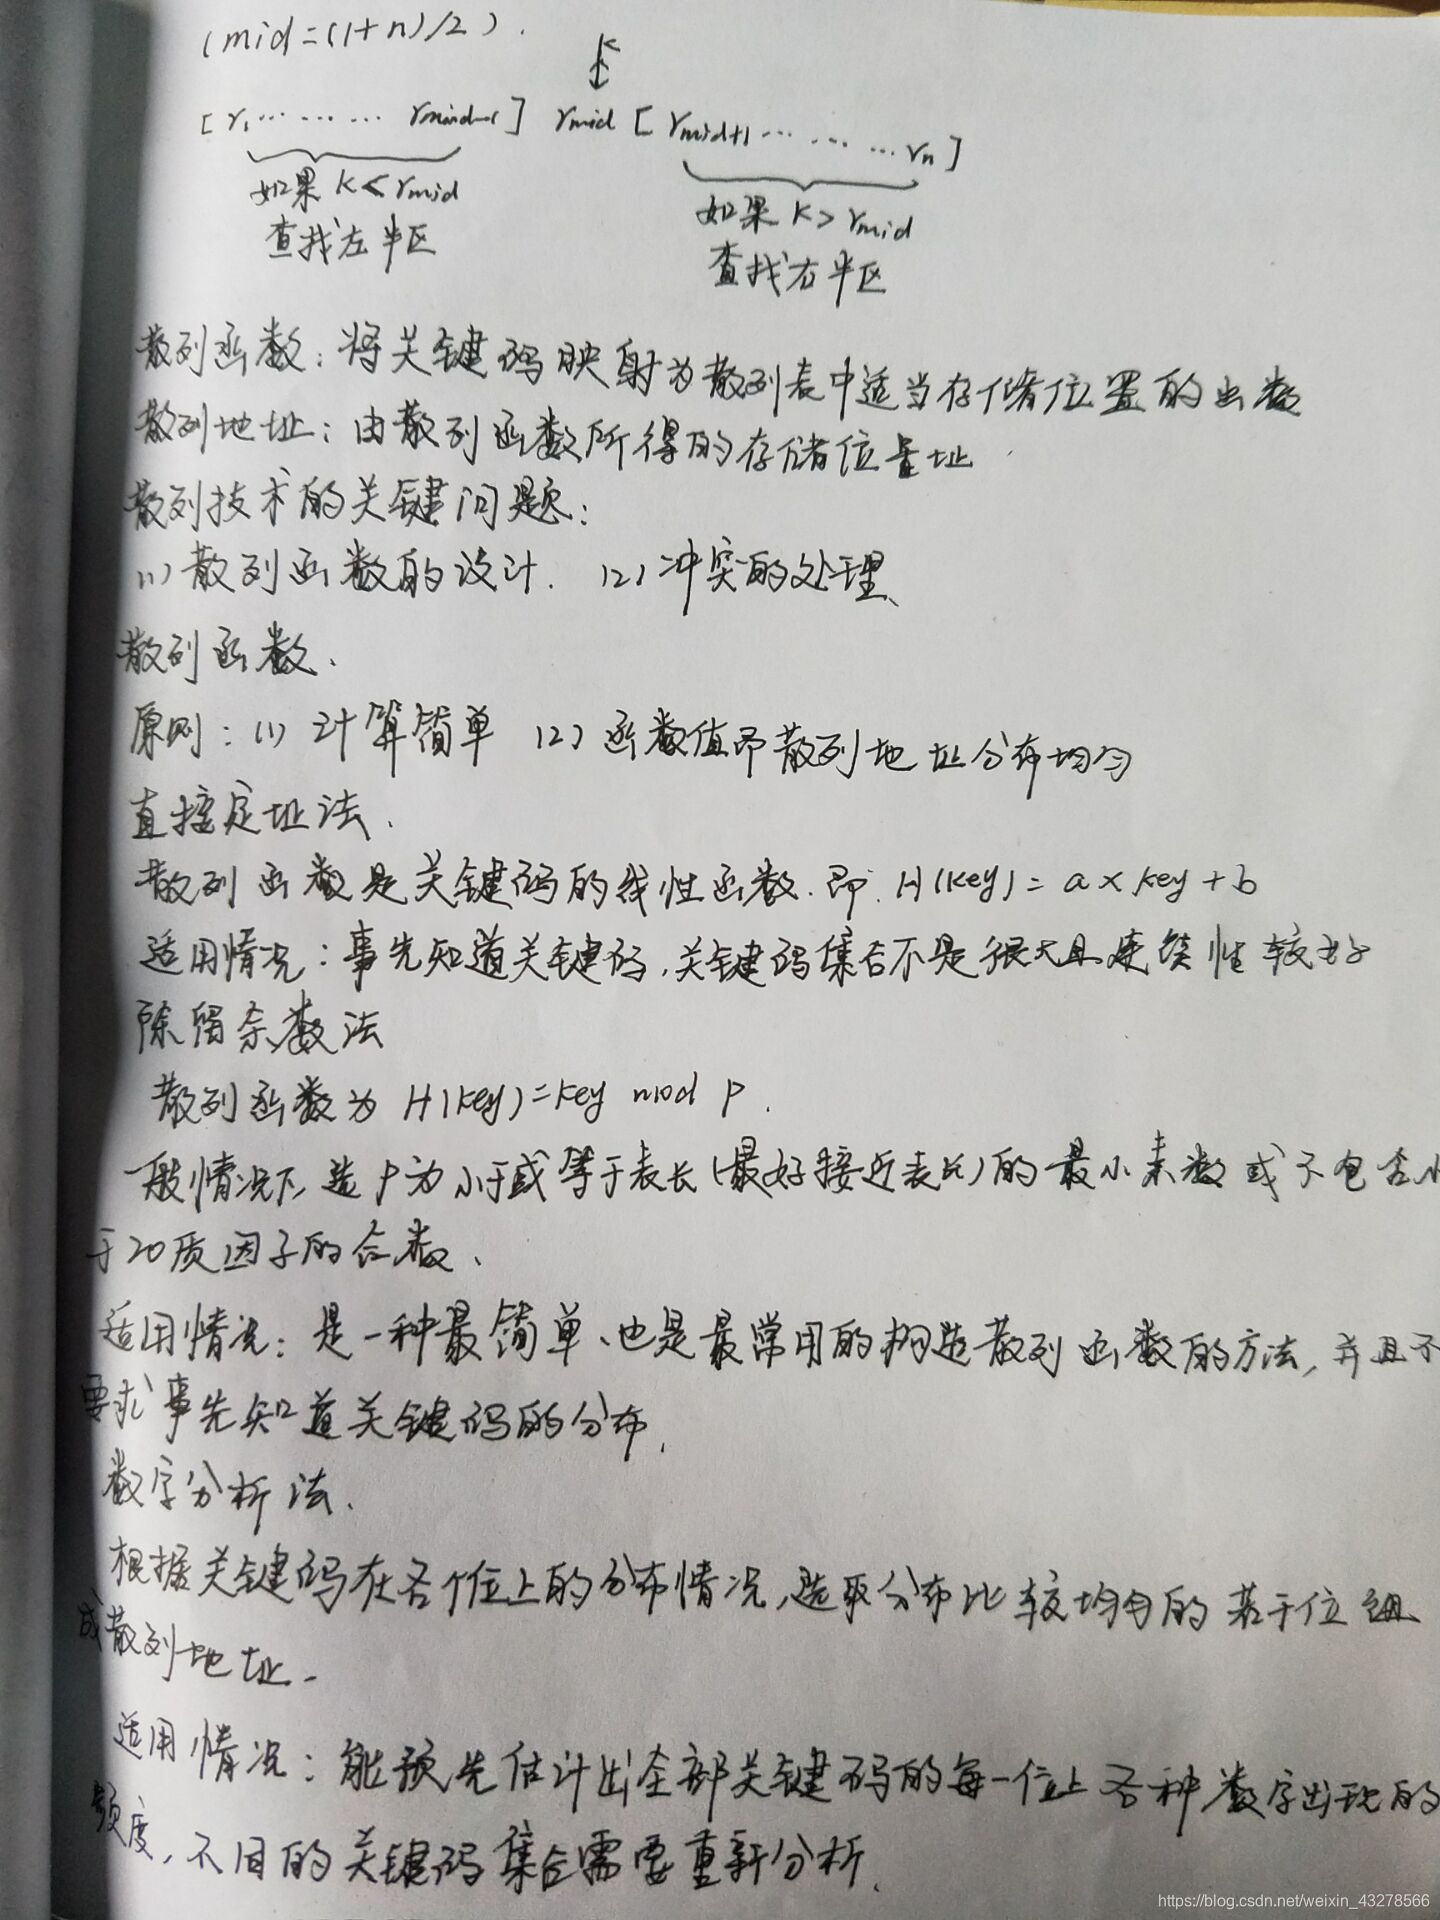 (mid=(1+n)/2).
k
[r1 ... ... ... rmid-1] rmid [rmid+1 ... ... ... rn]
如果 k<rmid
如果 k>rmid
查找左半区
查找右半区
散列函数:将关键码映射为散列表中适当存储位置的函数
散列地址:由散列函数所得的存储位置址
散列技术的关键问题:
(1)散列函数的设计. (2)冲突的处理、
散列函数、
原则:(1) 计算简单 (2) 函数值即散列地址分布均匀
直接定址法.
散列函数是关键码的线性函数.即. H(key)=a×key+b
适用情况:事先知道关键码,关键码集合不是很大且连续性较好
除留余数法
散列函数为 H(key)=key mod p.
一般情况下,选p为小于或等于表长(最好接近表长)的最小素数或不包含小
于20质因子的合数、
适用情况:是一种最简单、也是最常用的构造散列函数的方法,并且不
要求事先知道关键码的分布.
数字分析法、
根据关键码在各个位上的分布情况,选取分布比较均匀的若干位组
成散列地址.
适用情况:能预先估计出全部关键码的每一位上各种数字出现的
频度,不同的关键码集合需要重新分析.
https://blog.csdn.net/weixin_43278566